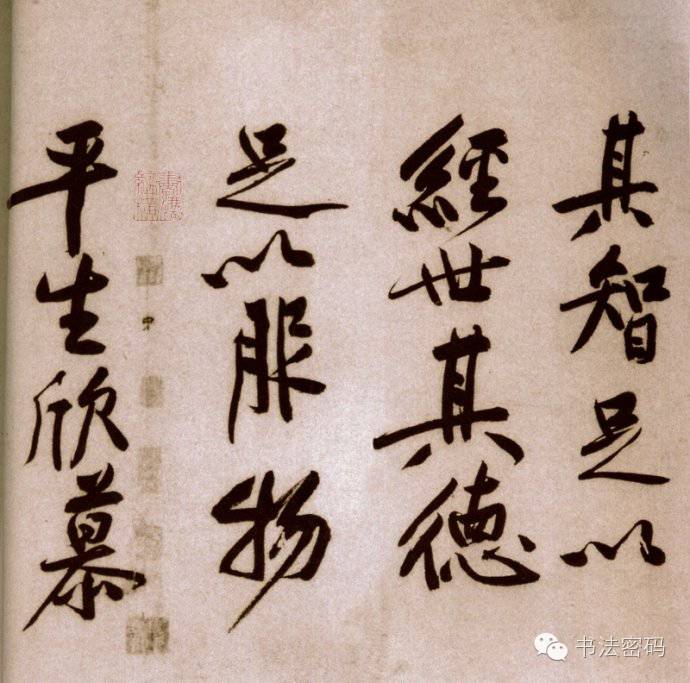 其智足以
經世其德
足以服物
平生欣慕
书法密码